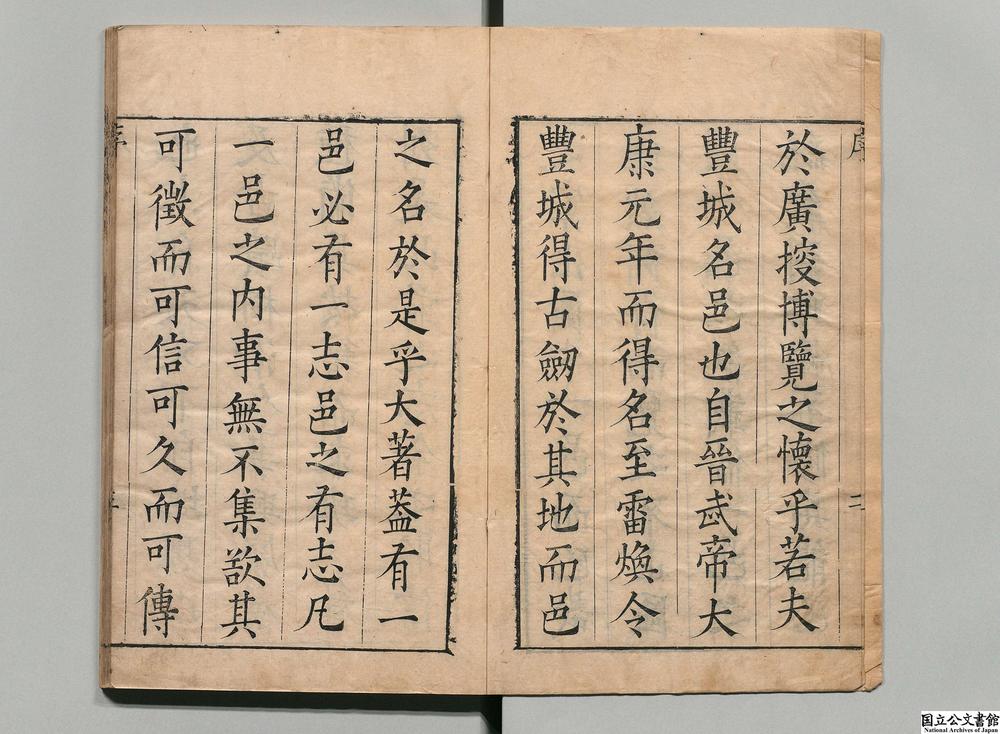 序
二
於廣搜博覽之懷乎若夫
豐城名邑也自晉武帝大
康元年而得名至雷煥令
豐城得古劒於其地而邑
之名於是乎大著葢有一
邑必有一志邑之有志凡
一邑之內事無不集欲其
可徵而可信可久而可傳
国立公文書館
National Archives of Japan